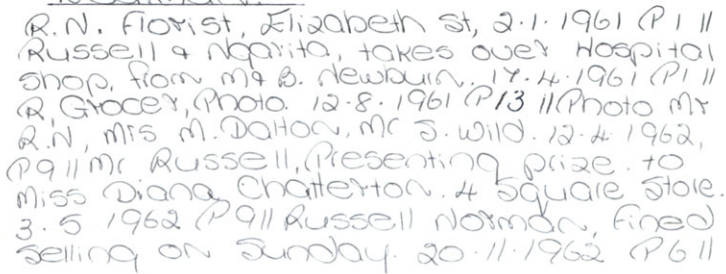 R.N. Florist, Elizabeth St, 2.1.1961 P1 //
Russell & Ngarita, takes over Hospital
Shop, from M & B. Newburn. 17.4.1961 P1 //
R, Grocer, Photo. 12.8.1961 P13 // Photo Mr
R.N, Mrs M. Dalton, Mr S. Wild. 12.4.1962,
P9 // Mr Russell, Presenting prize. to
Miss Diana Chatterton. 4 Square Store.
3.5 1962 P9 // Russell Norman, Fined
Selling on Sunday. 20.11.1962 P6 //